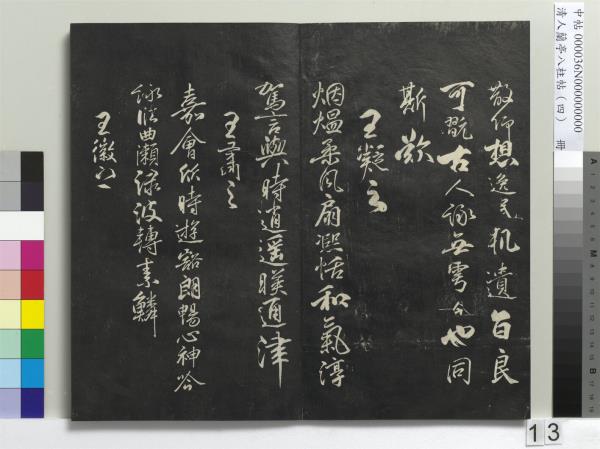 散仰想逸民軌遺音良
可翫古人詠舞雩今也同
斯歡
王凝之
烟熅柔風扇熙恬和氣淳
駕言興時逍遥暎通津
王肅之
嘉會欣時遊豁朗暢心神吟
詠曲瀨渌波轉素鱗
王徽之
中帖 000036N000000000
清人蘭亭八柱帖（四） 冊
13